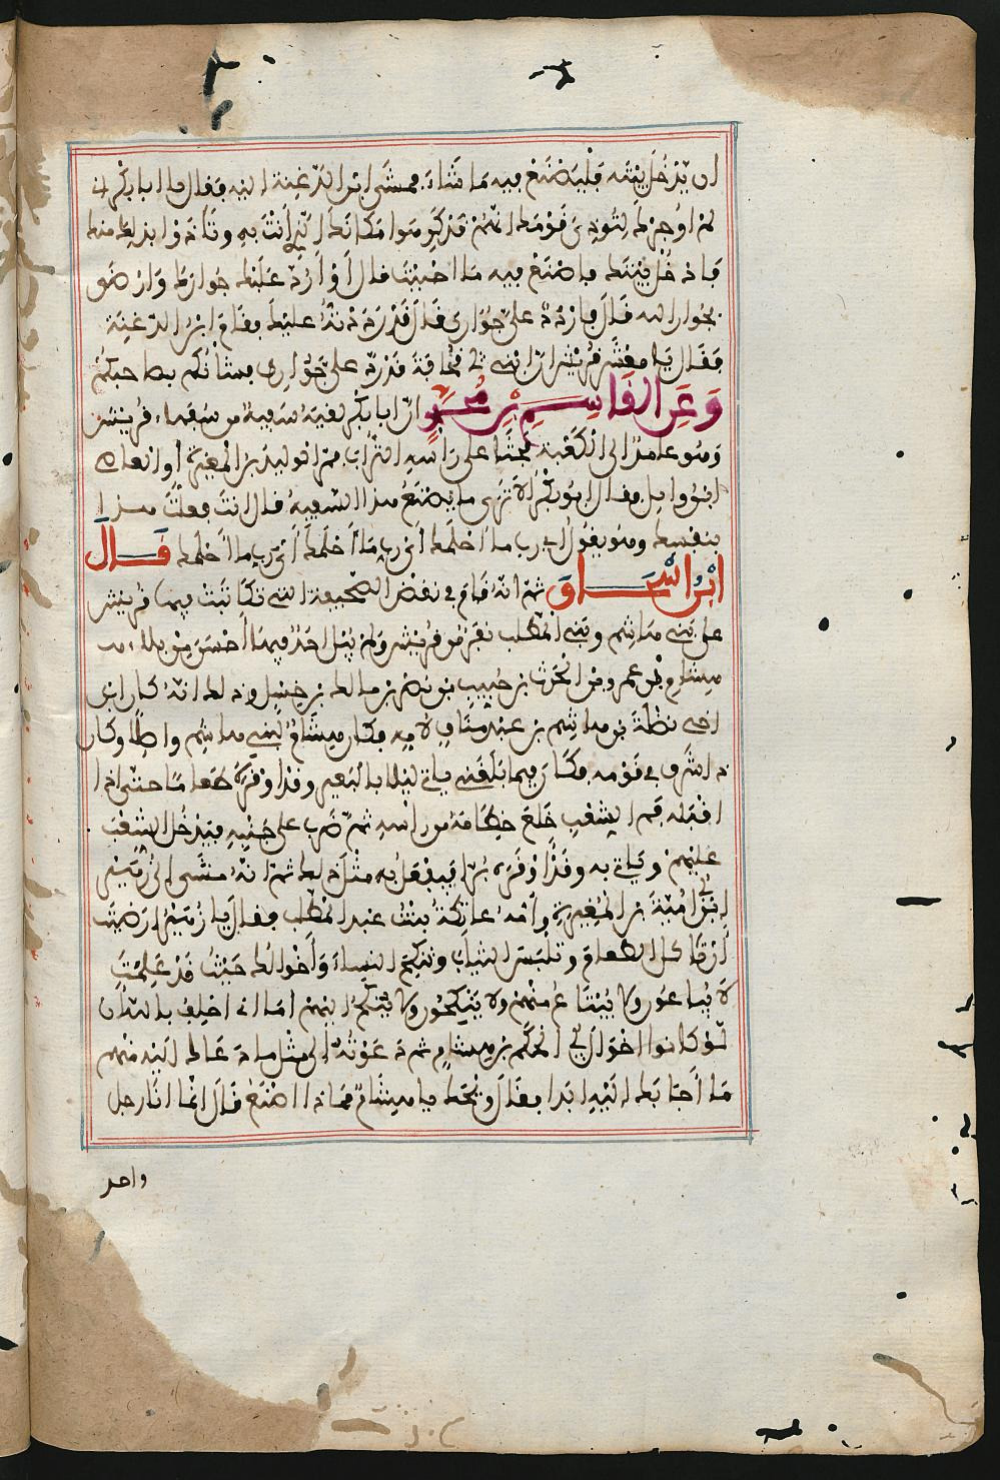 ان يدخل بيته فليصنع فيه ما شاء فمشى ابن الدغنة اليه فقال يا ابا بكر اني
لم اجرك لتوذي قومك انهم قد كرهوا مكانك الذي انت به وتأذوا بذلك منك
فادخل بيتك فاصنع فيه ما احببت قال أو أرد عليك جوارك وارضى
بجوار الله قال فاردد علي جواري قال قد رددته عليك فقام ابن الدغنة
فقال يا معشر قريش ان ابن أبي قحافة قد رد علي جواري فشأنكم بصاحبكم
وعن القاسم بن محمد ان ابا بكر لقيه سفيه من سفهاء قريش
وهو عامد الى الكعبة فحثا على رأسه التراب فمر الوليد بن المغيرة أو العاصي
ابن وايل فقال ابو بكر ألا ترى ما يصنع هذا السفيه قال انت فعلت هذا
بنفسك وهو يقول أي رب ما أحلمك أي رب ما أحلمك أي رب ما أحلمك قال
ابن اسحاق ثم انه قام في نقض الصحيفة التي تكاتبت فيها قريش
على بني هاشم وبني المطلب نفر من قريش ولم يبل احد فيها أحسن من بلاء
هشام بن عمرو بن الحرث بن حبيب بن نصر بن مالك بن حسل وذلك انه كان ابن
اخي نضلة بن هاشم بن عبد مناف لامه فكان هشام لبني هاشم واصلا وكان
ذا شرف في قومه فكان فيما بلغني ياتي ليلا بالبعير وقد أوقره طعاما حتى اذا
اقبله فم الشعب خلع خطامه من رأسه ثم ضرب على جنبه فيدخل الشعب
عليهم وياتي به وقد أوقره برا فيفعل به مثل ذلك ثم انه مشى الى زهير
ابن أبي أمية بن المغيرة وأمه عاتكة بنت عبد المطلب فقال يا زهير أرضيت
أن تأكل الطعام وتلبس الثياب وتنكح النساء وأخوالك حيث قد علمت
لا يباعون ولا يبتاع منهم ولا ينكحون ولا ينكح اليهم اما اني احلف بالله ان
لو كانوا اخوال أبي الحكم بن هشام ثم دعوته الى مثل ما دعاك اليه منهم
ما أجابك اليه ابدا فقال ويحك يا هشام فماذا اصنع قال انما انا رجل
واحد